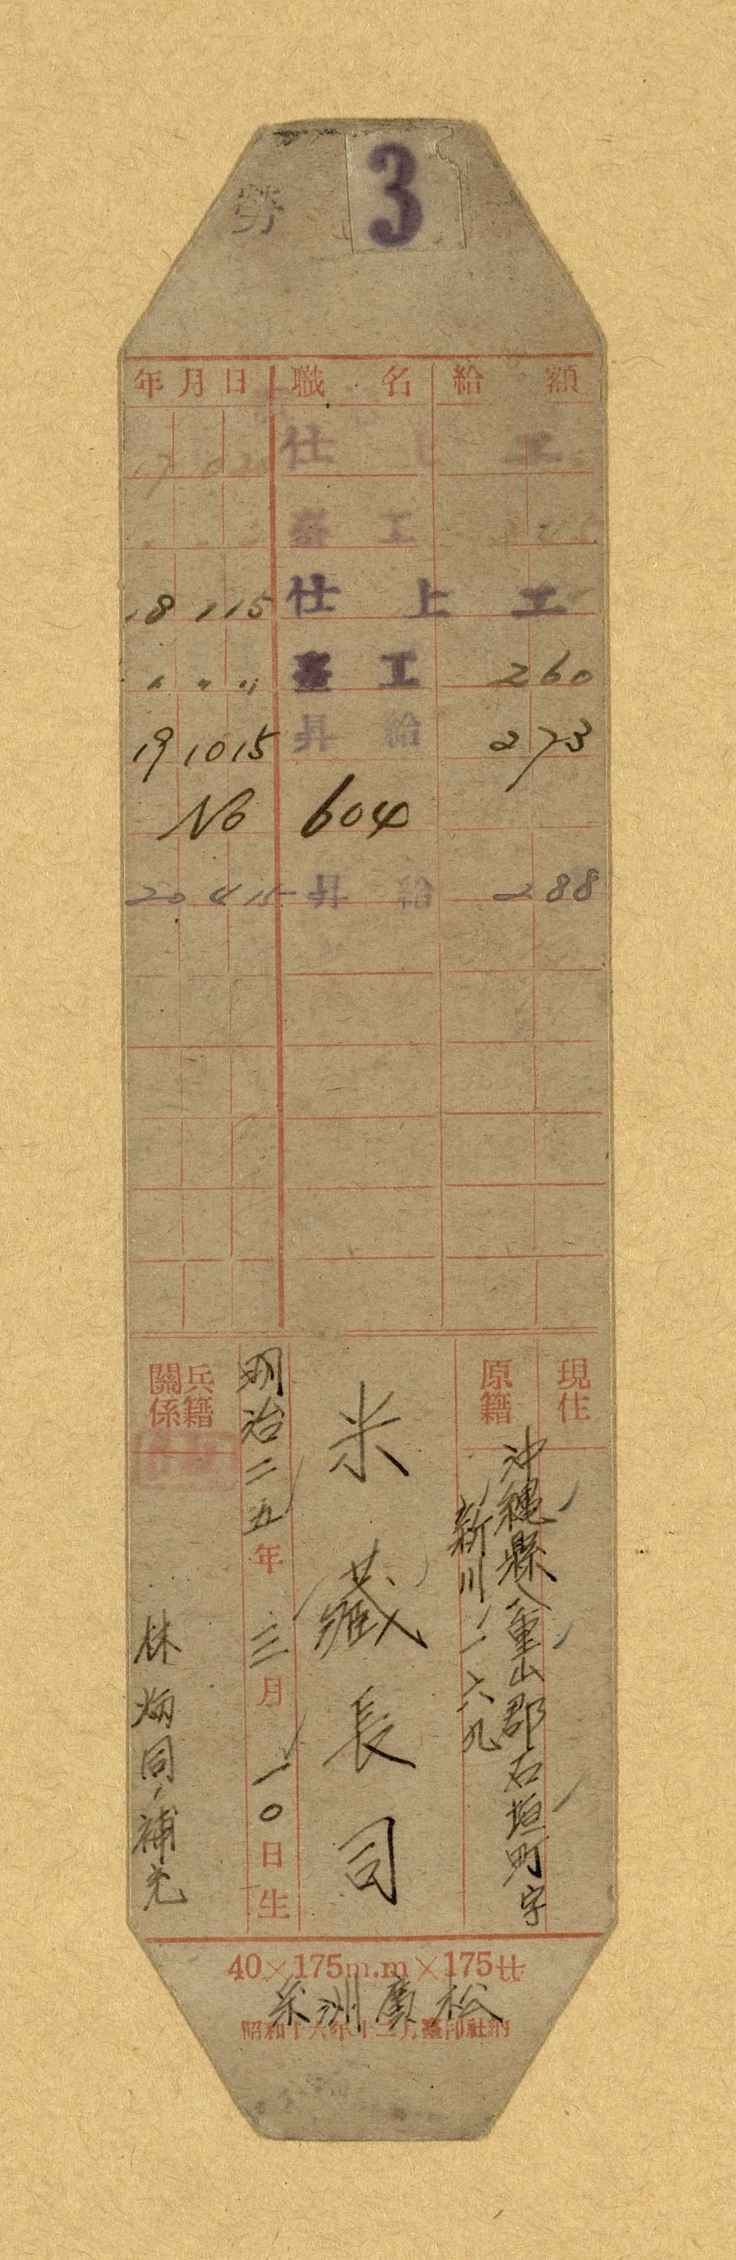 勞 3
年月日 職名 給額
仕 工
工
18 1 15 仕上工
〃 〃 〃 臺工 260
19 10 15 昇給 273
No 604
20 4 15 昇給 288
現住
原籍
沖繩縣八重山郡石垣町字
新川二六九
米藏長司
明治二五年三月一〇日生
兵籍關係
林炳同補充
40×175m.m×175廿
米洲廣松
昭和十六年十二月臺印社納